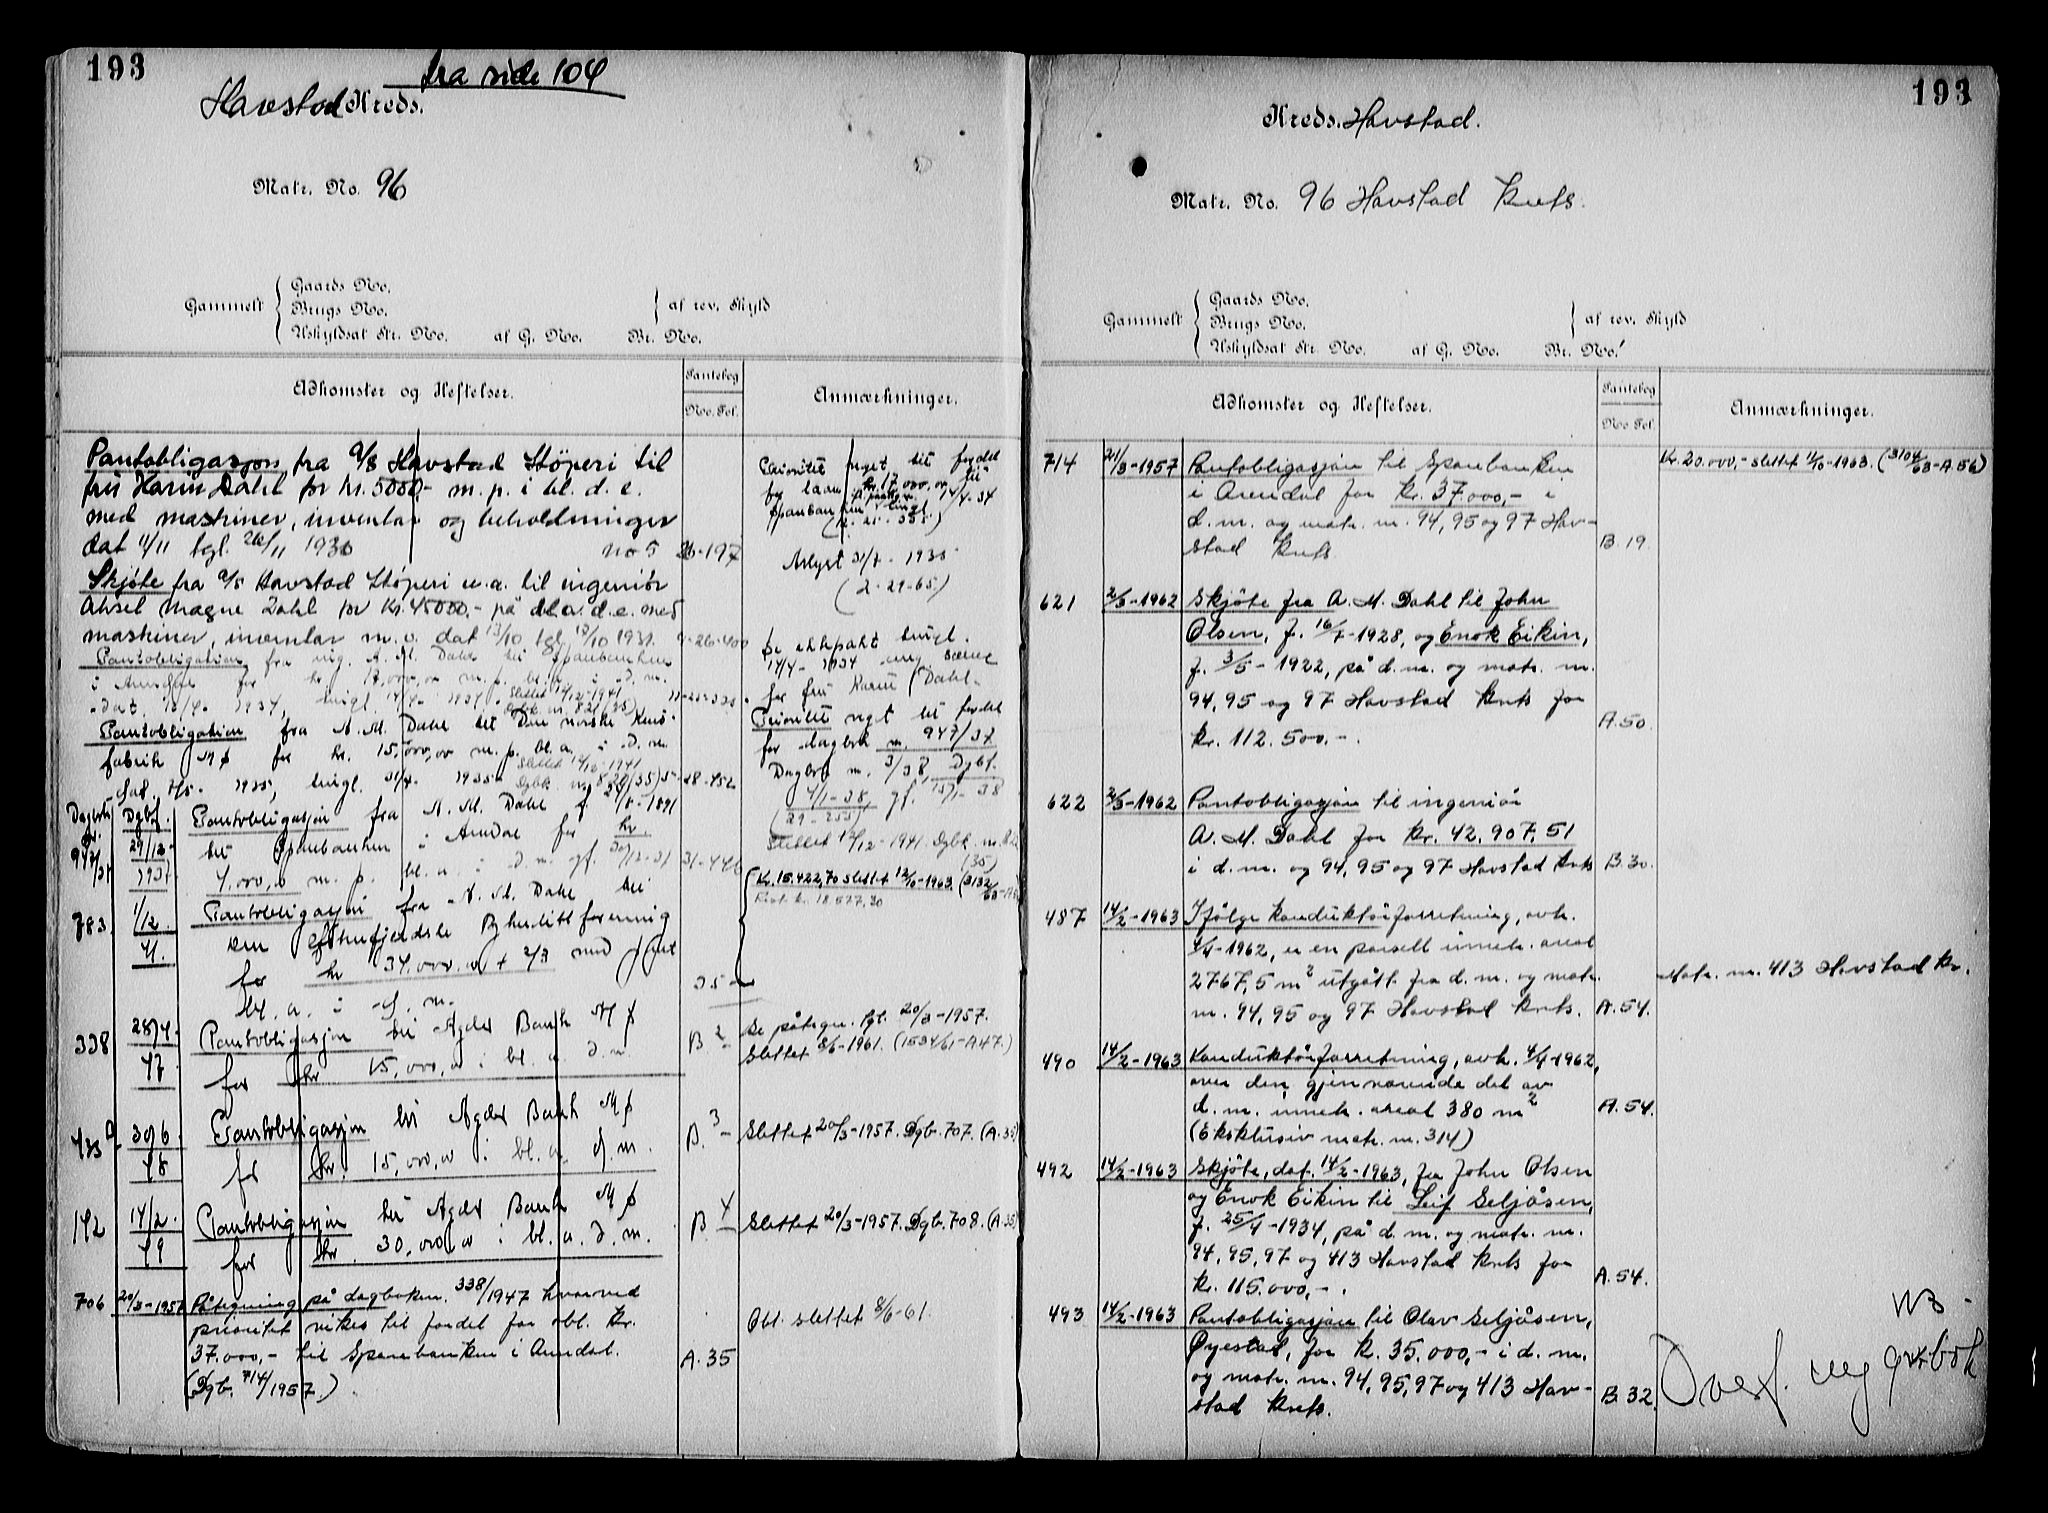 193
fra side 104
Havstad Kreds.
Matr. No. 96
Gammelt
Gaards No.
Brugs No.
Uskyldsat Str. No. af G. No. Br. No.
af rev. Skyld
Adkomster og Heftelser.
Pantebog
No. Fol.
Anmærkninger.
Pantobligasjon fra A/S Havstad Støperi til
fru Karin Dahl for kr. 5000,- m. p. i bl. d. e.
med maskiner, inventar og beholdninger
dat 11/11 tgl. 26/11 1930 no 5 26-197
Skjöte fra A/S Havstad Støperi u. a. til ingeniör
Aksel Magne Dahl for kr. 45000,- på bl. a. d. e. med
maskiner, inventar m. v. dat 13/10 tgl. 19/10 1931. 9-26-400
Pantobligation fra ing. A. M. Dahl til Sparebanken
i Arendal for kr. 17,000,00 m. p. bl. a. i d. m.
dat. 10/4 1934, tingl. 14/4 1934. Slettet 14/12-1941
Dgbk. nr. 821 (35)
Pantobligation fra A. M. Dahl til Den norske
fabrik A/S for kr. 15,000,00 m. p. bl. a. i d. m.
1935, tingl. 1935 Slettet 14/12-1941 28-452
Dagbk. nr. Dgbf.
947/37 29/12-1937 Pantobligasjon fra A. M. Dahl f. 1/8-1891
til Sparebanken i Arendal for kr.
4,000,00 m. p. bl. a. i d. m. gf. 30/12-37 31-446
783. 1/12. 41. Pantobligasjon fra A. M. Dahl til
Den Bykredittforening
for kr 34,000,00 + 2/3 med pant
bl. a. i d. m. 35-
338 28/4. 47 Pantobligasjon til Agder Bank A/S
for kr. 15,000,00 i bl. a. d. m. B. 2-
30/6. 48 Pantobligasjon til Agder Bank A/S
for kr. 15,000,00 i bl. a. d. m. B. 3-
142 14/2. 49 Pantobligasjon til Agder Bank A/S
for kr. 30,000,00 i bl. a. d. m. B. 4
706 20/3-1957 Påtegning på dagboknr. 338/1947 hvorved
prioritet vikes til fordel for obl. kr.
37.000,- til Sparebanken i Arendal.
(Dgb. 714/1957.) A. 35
Prioritet veget til fordel
for laan kr. 17,000,00 til
Sparebanken tingl. 14/4-34
Avlyst 31/7-1935
(2-29-65)
Se ektepakt tingl.
14/4-1934 ang. særeie
for fru Karin Dahl.
Prioritet veget til fordel
for dagbok nr. 947/37
Dagbk nr. 3/38, Dgbf.
4/1-38, gf. 15/1-38
(29-255)
Slettet 14/12-1941. Dgbk. nr.
(35)
Kr. 15.422,70 slettet 12/6-1963. (3132/63-A
Rest kr. 18.577,30
Se påtegn. tgl. 20/3-1957.
Slettet 8/6-1961. (1534/61-A47.)
Slettet 20/3-1957. Dgb. 707. (A.35)
Slettet 20/3-1957. Dgb. 708. (A.35)
Obl. slettet 8/6-61.
193
Kreds. Havstad.
Matr. No. 96 Havstad krets.
Gammelt
Gaards No.
Brugs No.
Uskyldsat Str. No. af G. No. Br. No.
af rev. Skyld
Adkomster og Heftelser.
Pantebog
No Fol.
Anmærkninger.
714 21/3-1957 Pantobligasjon til Sparebanken
i Arendal for kr. 37.000,- i
d. m. og matr. nr. 94, 95 og 97 Hav-
stad krets. B. 19.
Kr. 20.000,- slettet 11/6-1963. (3104/63-A.56)
621 2/3-1962 Skjöte fra A. M. Dahl til John
Olsen, f. 16/7-1928, og Enok Eikin,
f. 3/5-1922, på d. m. og matr. nr.
94, 95 og 97 Havstad krets for
kr. 112.500.-. A. 50.
622 2/3-1962 Pantobligasjon til ingeniör
A. M. Dahl for kr. 42.907,51
i d. m. og 94, 95 og 97 Havstad krets B. 30.
487 14/2-1963 Ifölge konduktörforretning, avh.
4/4-1962, er en parsell inneh. areal
2767,5 m² utgått fra d. m. og matr.
nr. 94, 95 og 97 Havstad krets. A. 54.
Matr. nr. 413 Havstad kr.
490 14/2-1963 Konduktörforretning, avh. 4/4-1962,
over den gjenværende del av
d. m. inneh. areal 380 m²
(Eksklusiv matr. nr. 314) A. 54.
492 14/2-1963 Skjöte, dat. 14/2-1963, fra John Olsen
og Enok Eikin til Leif Seljåsen,
f. 25/4-1934, på d. m. og matr. nr.
94, 95, 97 og 413 Havstad krets for
kr. 115.000,-. A. 54.
493 14/2-1963 Pantobligasjon til Olav Seljåsen,
Öyestad, for kr. 35.000,- i d. m.
og matr. nr. 94, 95, 97 og 413 Hav-
stad krets. B. 32.
NB -
Overf. ny grbok